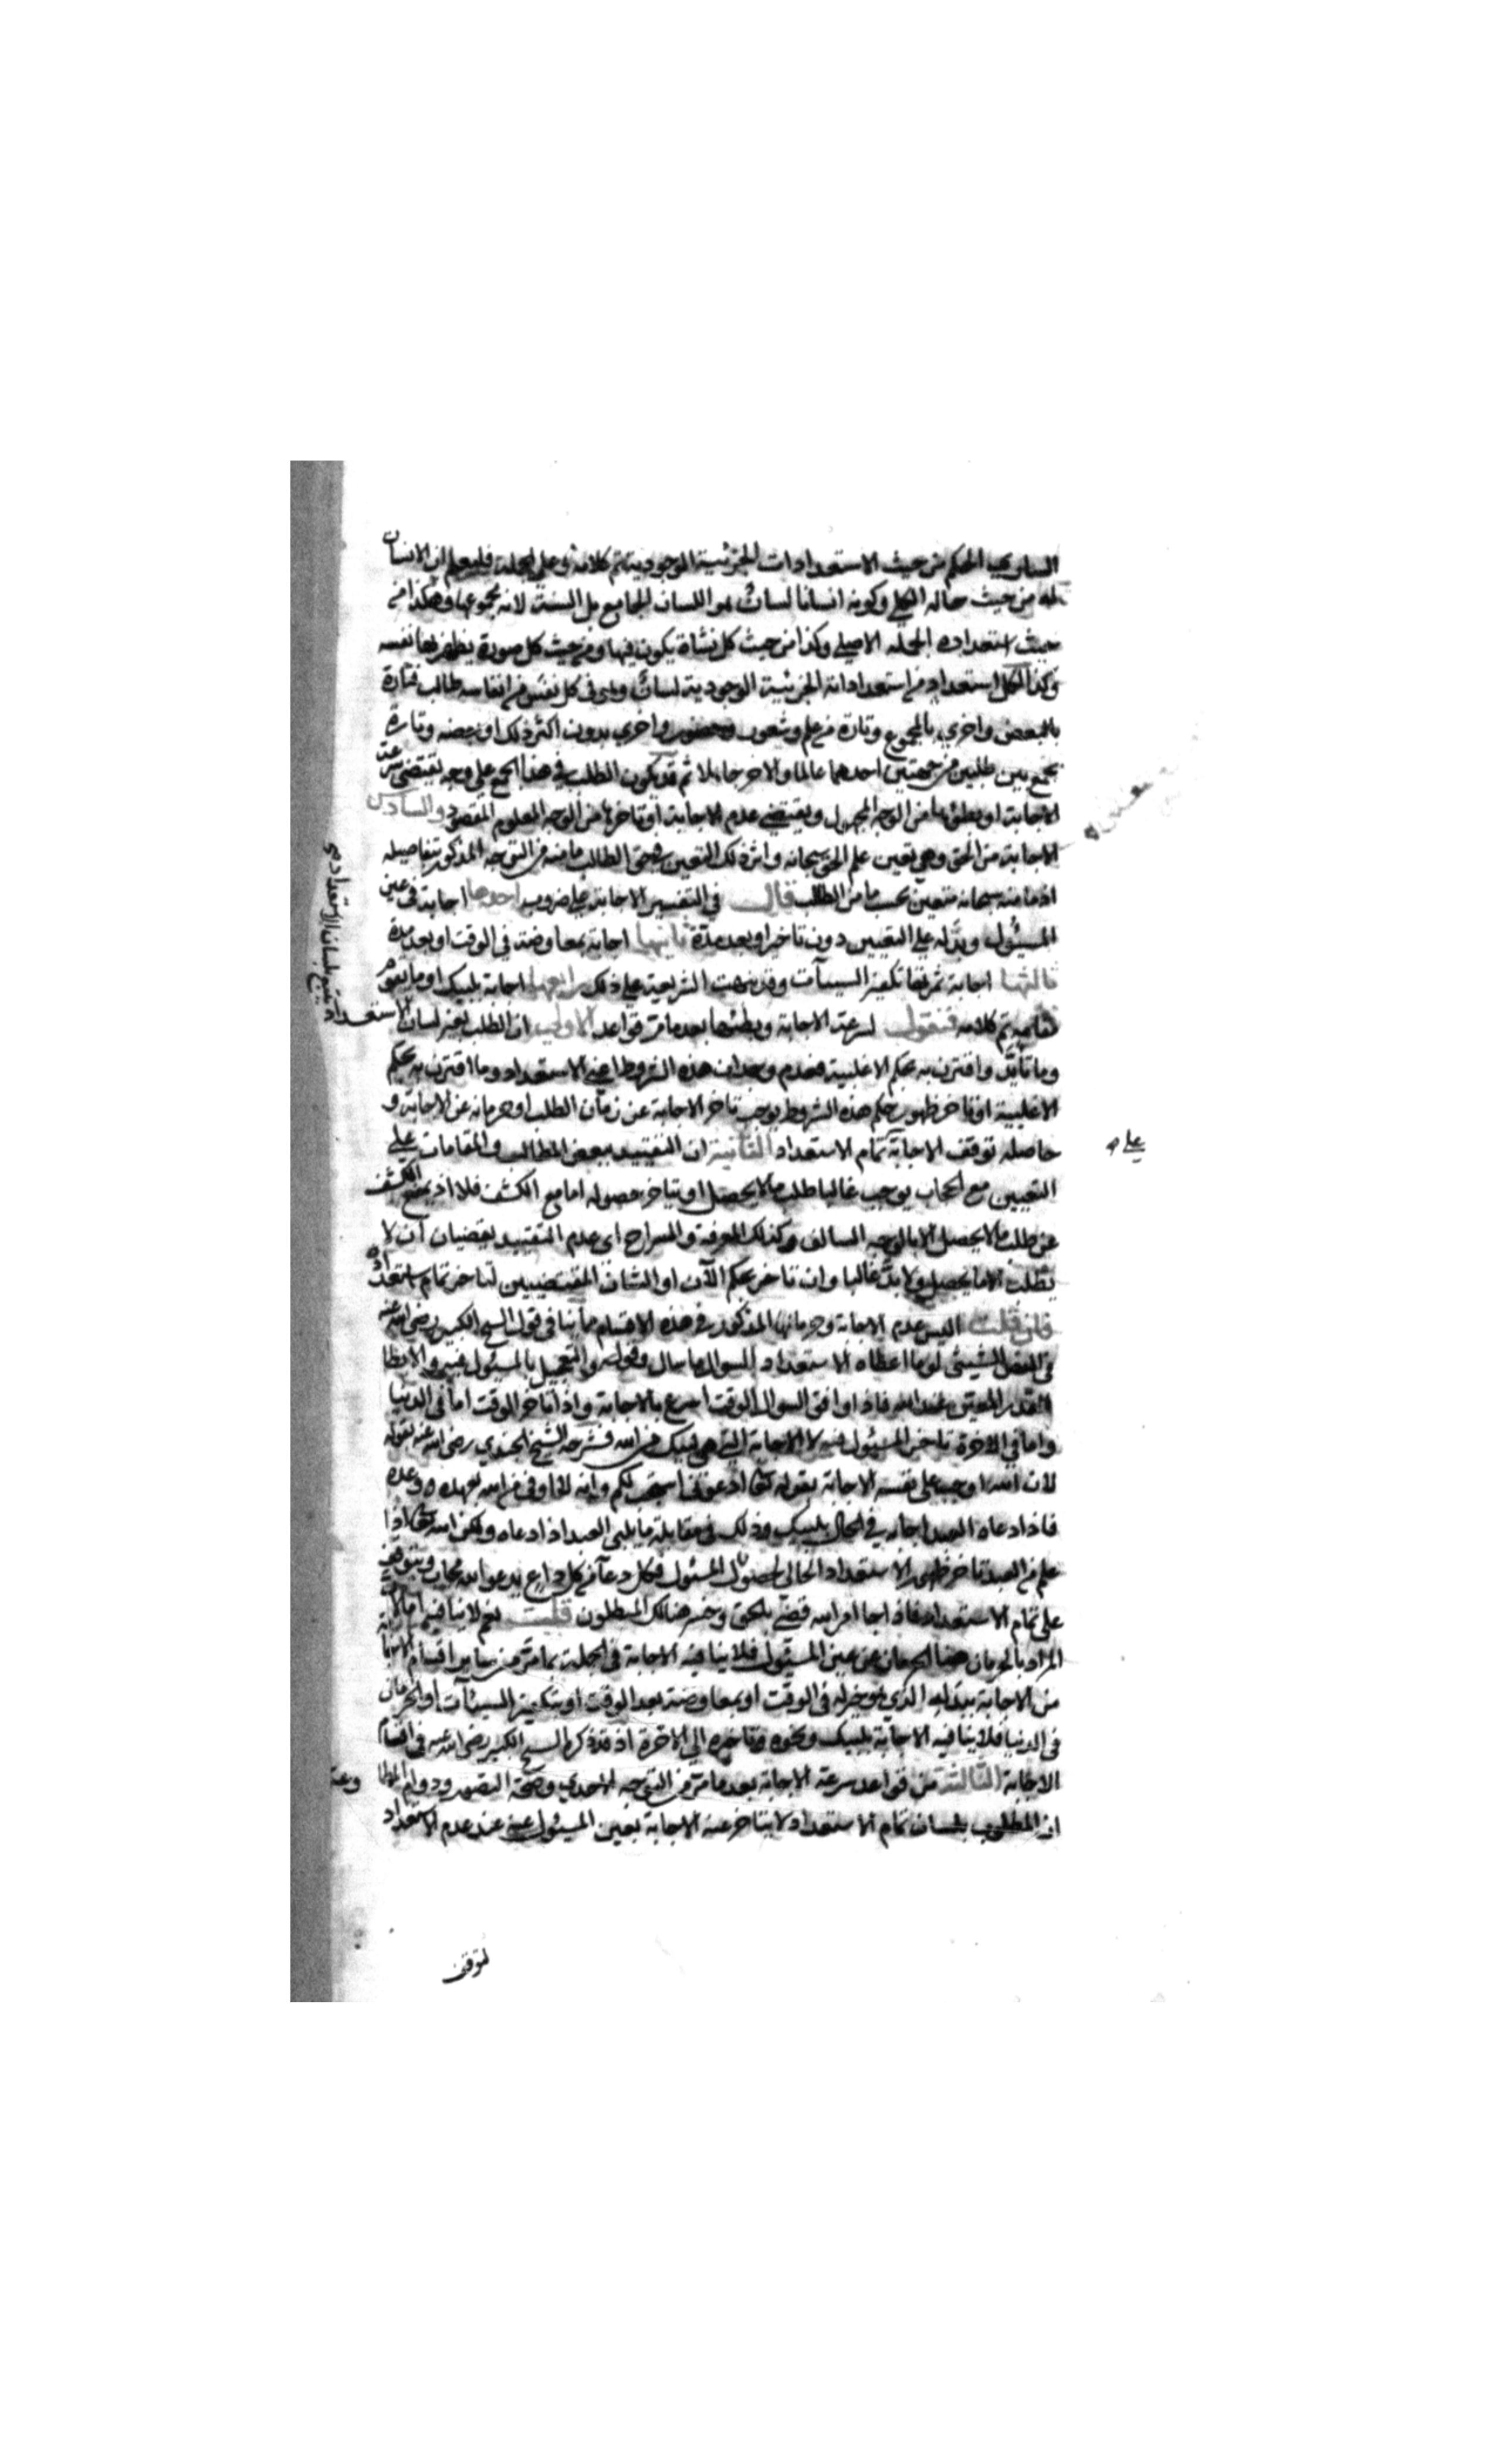 الساري الحكم من حيث الاستعدادات الجزئية الوجودية تم كلامه وعلى الجملة فليعلم ان الانسان
له من حيث حاله الكلي وكونه انسانا لسان هو اللسان الجامع بل السنة لانه مجموعها وهكذا من
حيث استعداده الاصلي وكذا من حيث كل نشاة يكون فيها ومن حيث كل صورة يظهر بها نفسه
وكذا لكل استعداد من استعداداته الجزئية الوجودية لسان وفي كل نفس من انفاسه طالب فتارة
بالبعض واخري بالمجموع وتارة من علم وشعور وحضور واخري بدون اكثر ذلك او بعضه وتارة
يجمع بين طلبين من جهتين احدهما عالما والاخر جاهلا ثم قد يكون الطلب في هذا الجمع على وجه يقتضي سرعة
الاجابة او بطئها من الوجه المجهول ويقتضي عدم الاجابة او تاخرها من الوجه المعلوم المقصود والسادس
الاجابة من الحق وهي تعين علم الحق سبحانه واثر ذلك التعين في حق الطالب ما منه من التوجه المذكور بتفاصيله
اذ ما منه سبحانه متعين بحسب ما من الطلب قال في التفسير الاجابة على ضروب احدها اجابة في عين
المسئول وبذله على التعيين دون تاخير او بعد مدة ثانيها اجابة بمعاوضة في الوقت او بعد مدة
ثالثها اجابة ثمرتها تكفير السيئات وقد نبهت الشريعة على ذلك رابعها اجابة بلبيك او ما يقوم
مقامه تم كلامه فنقول لسرعة الاجابة وبطئها بعد ما مر قواعد الاولي ان الطلب بغير لسان الاستعداد
وما تأيد واقترن به بحكم الاغلبية فعدم وجدان هذه الشروط اعني الاستعداد وما اقترن به بحكم
الاغلبية او تاخر ظهور حكم هذه الشروط يوجب تاخر الاجابة عن زمان الطلب او حرمانه عن الاجابة و
حاصله توقف الاجابة تمام الاستعداد الثانية ان التقييد ببعض المطالب والمقامات على
التعيين مع الحجاب يوجب غالبا طلب ما لا يحصل او يتاخر حصوله اما مع الكشف فلا اذ يمنع الكشف
عن طلب ما لا يحصل الا بالوجه السالف وكذلك المعرفة والسراح اي عدم التقييد يقضيان ان لا
يطلب الا ما يحصل ولا بد غالبا وان تاخر بحكم الآن او الشان المقتضيين لتاخر تمام استعداده
فان قلت اليس عدم الاجابة وحرمانها المذكور في هذه الاقسام مما ينافي قول الشيخ الكبير رضي الله عنه
في الفص الشيثي لو ما اعطاه الاستعداد السوال ما سال وقوله والتعجيل بالمسئول فيه والابطا
للقدر المعين عند الله فاذا وافق السوال الوقت اسرع بالاجابة واذا تاخر الوقت اما في الدنيا
واما في الاخرة تاخر المسئول فيه لا الاجابة التي هي لبيك من الله فشرحه الشيخ الجندي رضي الله عنه بقوله
لان الله اوجب على نفسه الاجابة بقوله تعالى ادعوني استجب لكم وانه لا اوفي من الله بعهده ووعده
فاذا دعاه العبد اجابه في الحال بلبيك وذلك في مقابلة ما يلبي العبد اذا دعاه ولكن الله تعالى اذا
علم من العبد تاخر ظهور الاستعداد الحالي لحصول المسئول فكل دعآ من كل داع يدعو الله مجاب ويتوقف
على تمام الاستعداد فاذا جا امر الله قضي بالحق وخسر هنالك المبطلون قلت نعم لا ينافيه
المراد بالحرمان هنا الحرمان عن عين المسئول فلا ينافيه الاجابة في الجملة بما مر من ساير اقسام
من الاجابة ببدله الذي هو خير له في الوقت او بمعاوضة بعد الوقت او بتكفير السيئآت او الحرمان
في الدنيا فلا ينافيه الاجابة بلبيك ونحوه وتاخيره الي الاخرة اذ قد ذكره الشيخ الكبير رضي الله عنه في اقسام
الاجابة الثالثة من قواعد سرعة الاجابة بعد ما مر من التوجه الاحدي وصحة التصور ودوام
ان المطلوب بلسان تمام الاستعداد لا يتاخر عنه الاجابة بعين المسئول عنه عند عدم الاستعداد
لتوقف